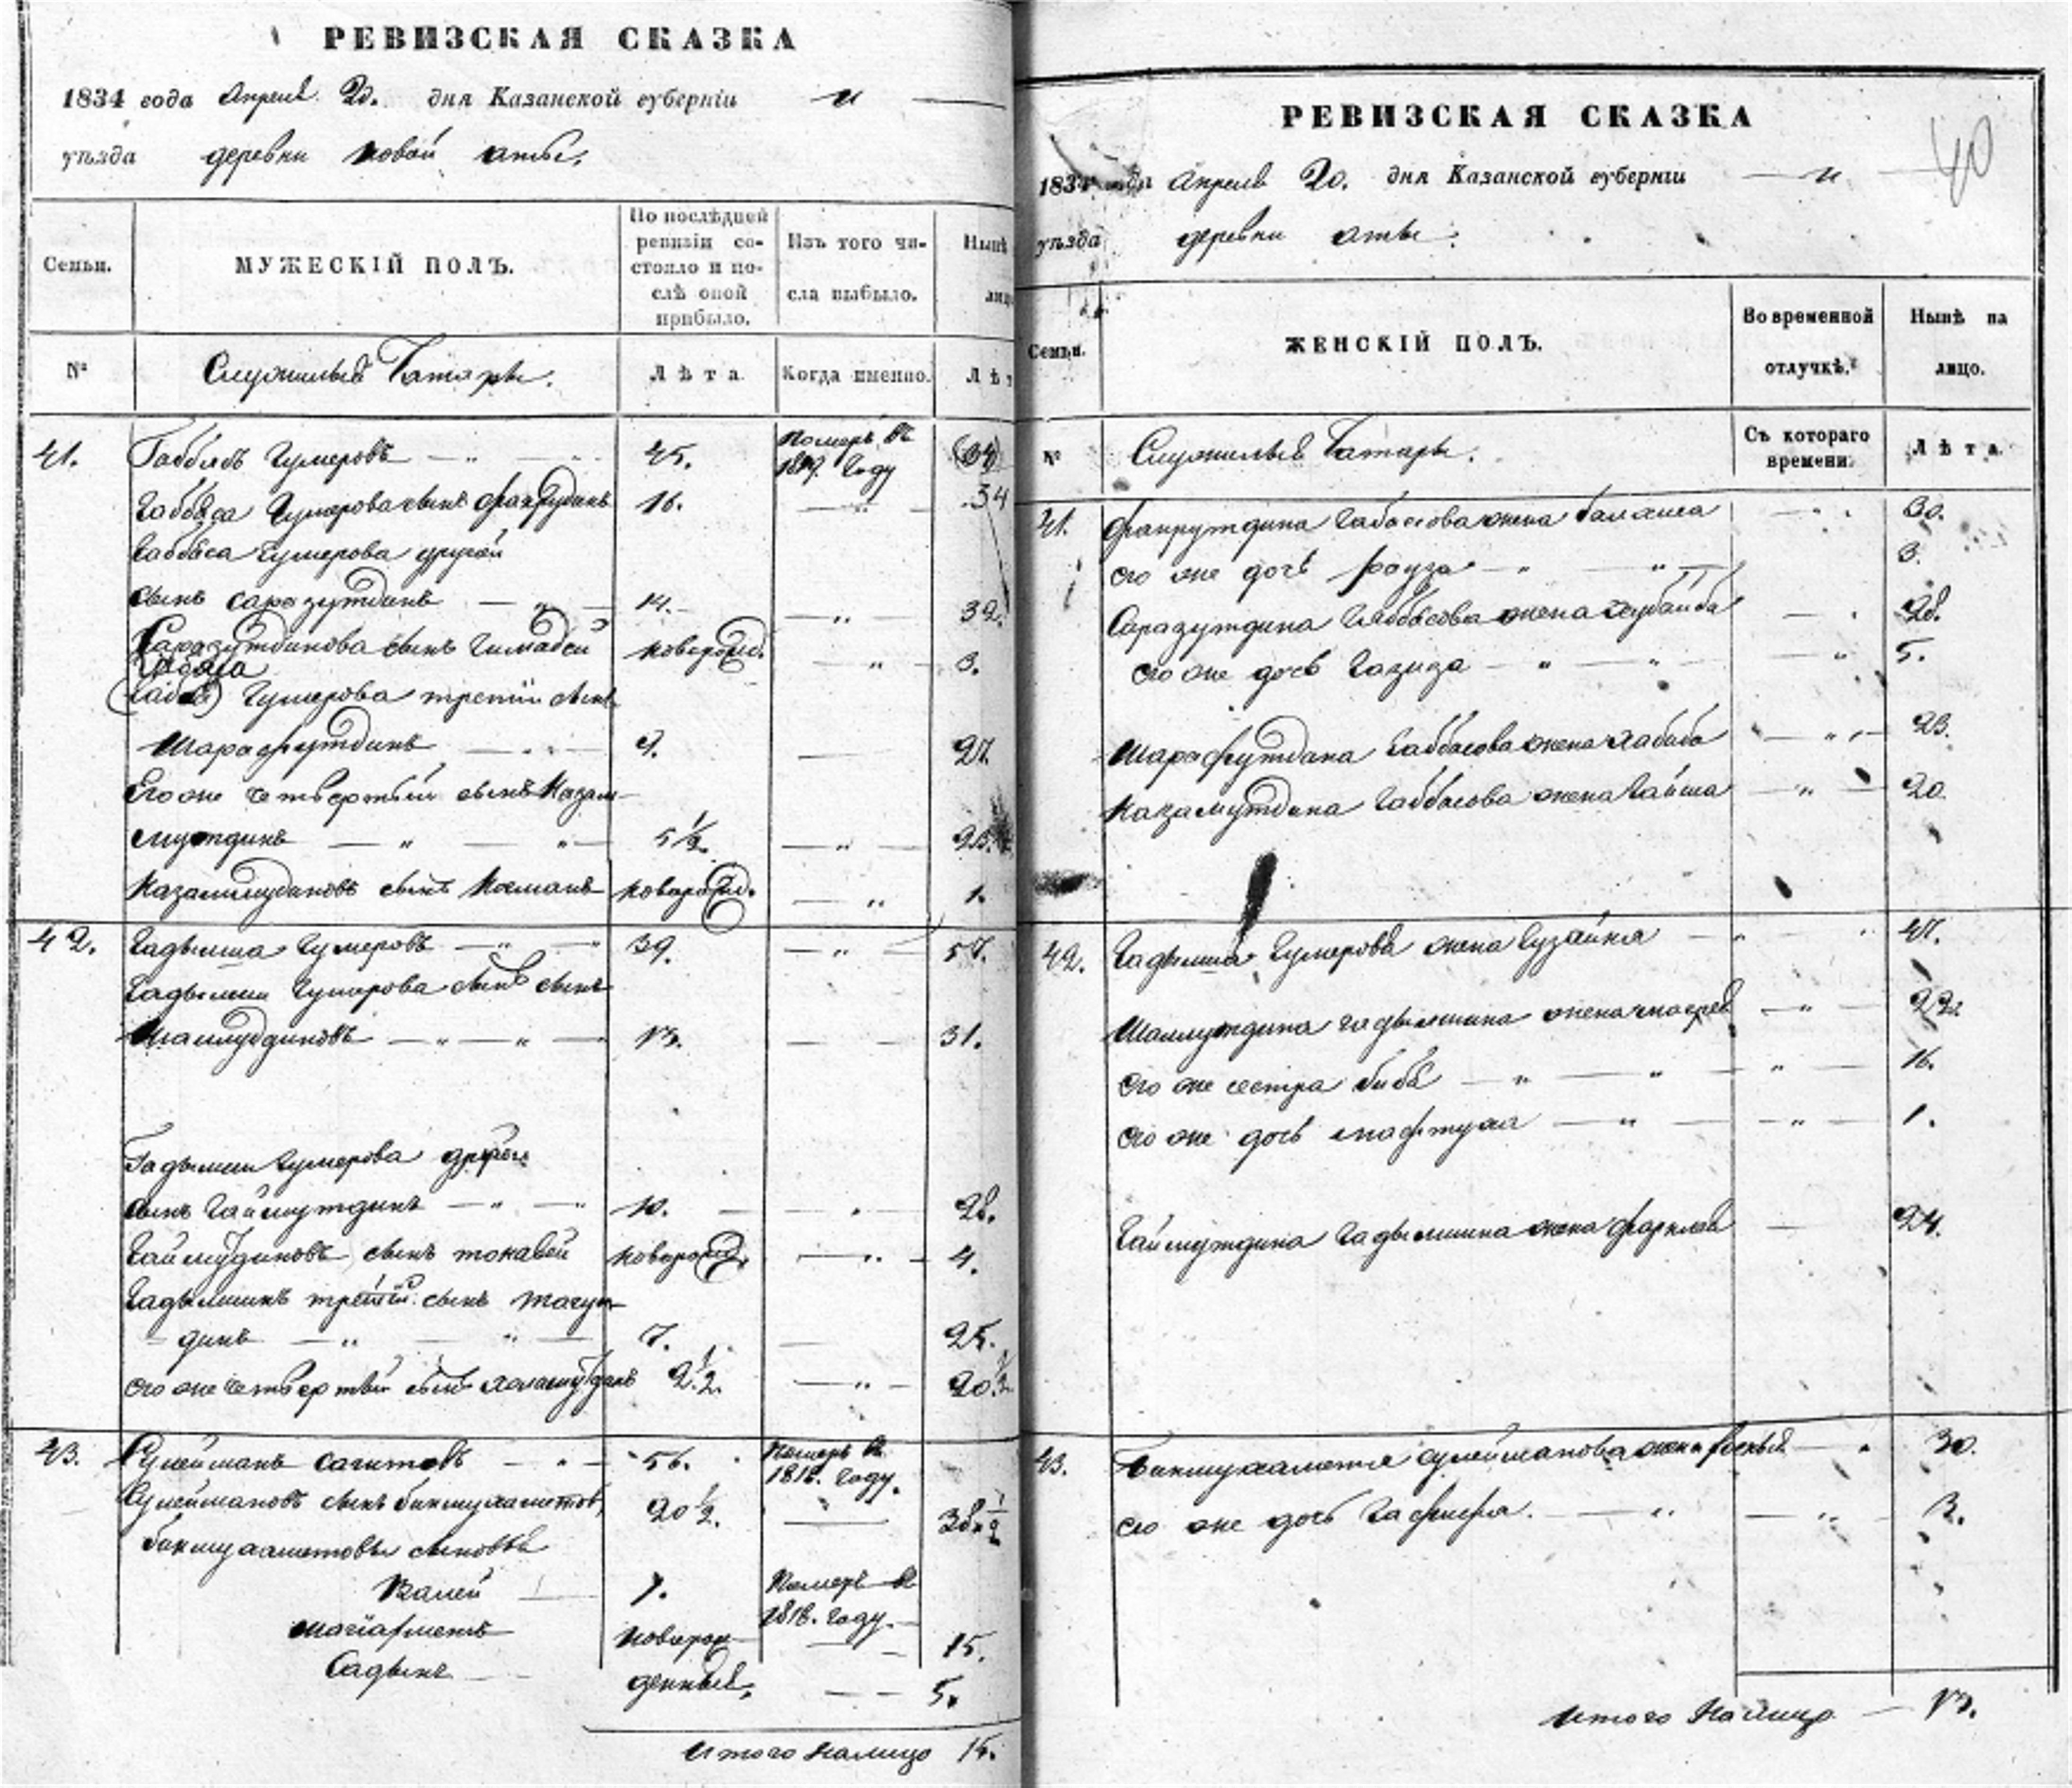 РЕВИЗСКАЯ СКАЗКА
1834 года Апреля 20. дня Казанской губерніи
уѣзда деревни новой аты.
Семьи. МУЖЕСКІЙ ПОЛЪ. По послѣдней ревизіи состояло и послѣ оной прибыло. Изъ того числа выбыло. Нынѣ лицо
№ Служилыя Татары. Лѣта. Когда именно. Лѣт
41. Габбясъ Гумеровъ 45. Померъ въ 18 году (34)
Габбяса Гумерова сынъ Фахрудинъ 16. 34
Габбяса Гумерова другой
сынъ саразутдинъ 14. 32.
Саразутдинова сынъ новорожд. 3.
Габяса
Гумерова третій сынъ
Шарафутдинъ 9. 27.
Его же четвертый сынъ Казам-
мутдинъ 5 1/2. 23.
сынъ новорожд. 1.
42. Гадылша Гумеровъ 39. 57.
Гадылши Гумерова сынъ сынъ
Шаммудиновъ 13. 31.
Гадылши Гумерова другой
сынъ Гаймутдинъ 10. 28.
Гаймудиновъ сынъ новорожд. 4.
Гадылшинъ третій сынъ
динъ 7. 25.
его же четвертый сынъ 2 1/2. 20 1/2
43. Сулейманъ сагитовъ 56. Померъ въ 1818. году.
Сулеймановъ сынъ бикмухаметовъ 20 1/2. 38 1/2
бикмухаметовы сыновья
Валей 1. Померъ въ 1818. году.
новорож- 15.
Садыкъ денные. 5.
Итого налицо 15.
РЕВИЗСКАЯ СКАЗКА
40
1834 года Апреля 20. дня Казанской губерніи
уѣзда деревни аты.
Семьи. ЖЕНСКІЙ ПОЛЪ. Во временной отлучкѣ. Нынѣ на лицо.
№ Служилыя Татары. Съ котораго времени. Лѣта.
41. Фахрутдина Габбасова жена 30.
его же дочь рауза 3.
Саразутдина Габбясова жена 28.
его же дочь Газиза 5.
Шарафутдина Габбасова жена хабиба 23.
Казамутдина Габбасова жена Гайша 20.
42. Гадылша Гумерова жена Гузайня 47.
Шаммутдина гадылшина жена 22.
его же сестра биби 16.
его же дочь 1.
Гаймутдина Гадылшина жена 24.
43. Бикмухаметя сулейманова жена 30.
его же дочь 3.
Итого Налицо 13.